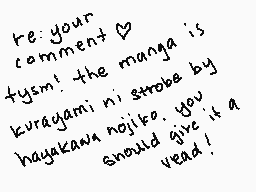 re: your
comment ♡
tysm! the manga is
kuragami ni strobe by
hayakawa nojiko. you
should give it a
read!